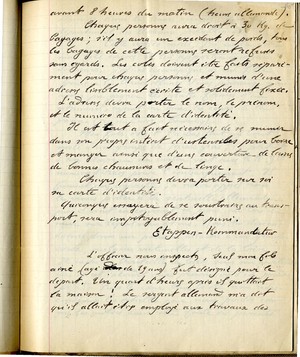 avant 8 heures du matin (heure allemande).
Chaque personne aura droit à 30 Kg. de
bagages ; s'il y aura un excédent de poids, tous
les bagages de cette personne seront refusés
sans égards. Les colis doivent être faits séparé-
ment pour chaque personne et munis d'une
adresse lisiblement écrite et solidement fixée.
L'adresse devra porter le nom, le prénom,
et le numéro de la carte d'identité.
Il est tout à fait nécessaire de se munir
dans son propre intérêt d'ustensiles pour boire
et manger ainsi que d'une couverture de laine
de bonnes chaussures et de linge.
Chaque personne devra porter sur soi
sa carte d'identité.
Quiconque essayera de se soustraire au trans-
port, sera impitoyablement puni.
Etappen-Kommandantur
L'officier nous inspecta, seul mon fils
aîné (agé de 19 ans) fut désigné pour le
départ. Un quart d'heure après il quittait
la maison ! Le sergent allemand m'a dit
qu'il allait être employé aux travaux des